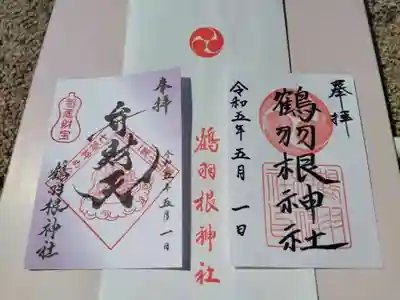 奉拝
鶴羽根神社
令和五年五月一日
鶴羽根神社
奉拝
弁財天
令和五年五月一日
鶴羽根神社